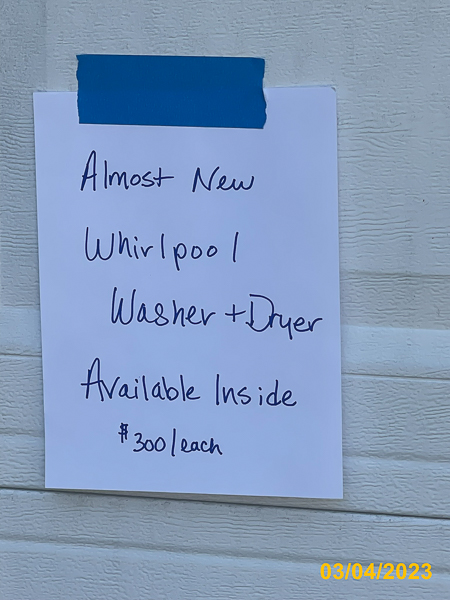 Almost New
Whirlpool
Washer + Dryer
Available Inside
$300/each
03/04/2023